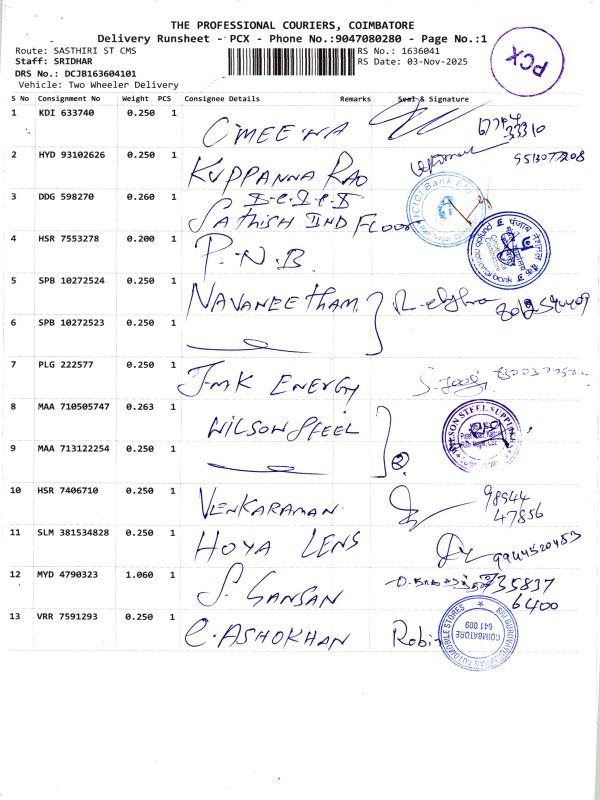 THE PROFESSIONAL COURIERS, COIMBATORE
Delivery Runsheet - PCX - Phone No.:9047080280 - Page No.:1
Route: SASTHIRI ST CMS
RS No.: 1636041
Staff: SRIDHAR
RS Date: 03-Nov-2025
DRS No.: DCJB163604101
Vehicle: Two Wheeler Delivery
PCX
S No Consignment No Weight PCS Consignee Details Remarks Seal & Signature
1 KDI 633740 0.250 1 CMEENA
33310
2 HYD 93102626 0.250 1 KUPPANNA RAO
3 DDG 598270 0.260 1
SATHISH IIND FLOOR
ICICI Bank
4 HSR 7553278 0.200 1 P.N.B
punjab national bank
5 SPB 10272524 0.250 1 NAVANEETHAM
6 SPB 10272523 0.250 1
7 PLG 222577 0.250 1 JMK ENERGY
8 MAA 710505747 0.263 1 WILSON STEEL
WILSON STEEL SUPPLIERS
9 MAA 713122254 0.250 1 2
10 HSR 7406710 0.250 1 VENKARAMAN 98944
47856
11 SLM 381534828 0.250 1 HOYA LENS 9944520453
12 MYD 4790323 1.060 1 J. GANSAN 35837
6400
13 VRR 7591293 0.250 1 C. ASHOKHAN Robin
SRI GURUVAYURAPPAN AUTOMOBILE STORES
COIMBATORE
641 009